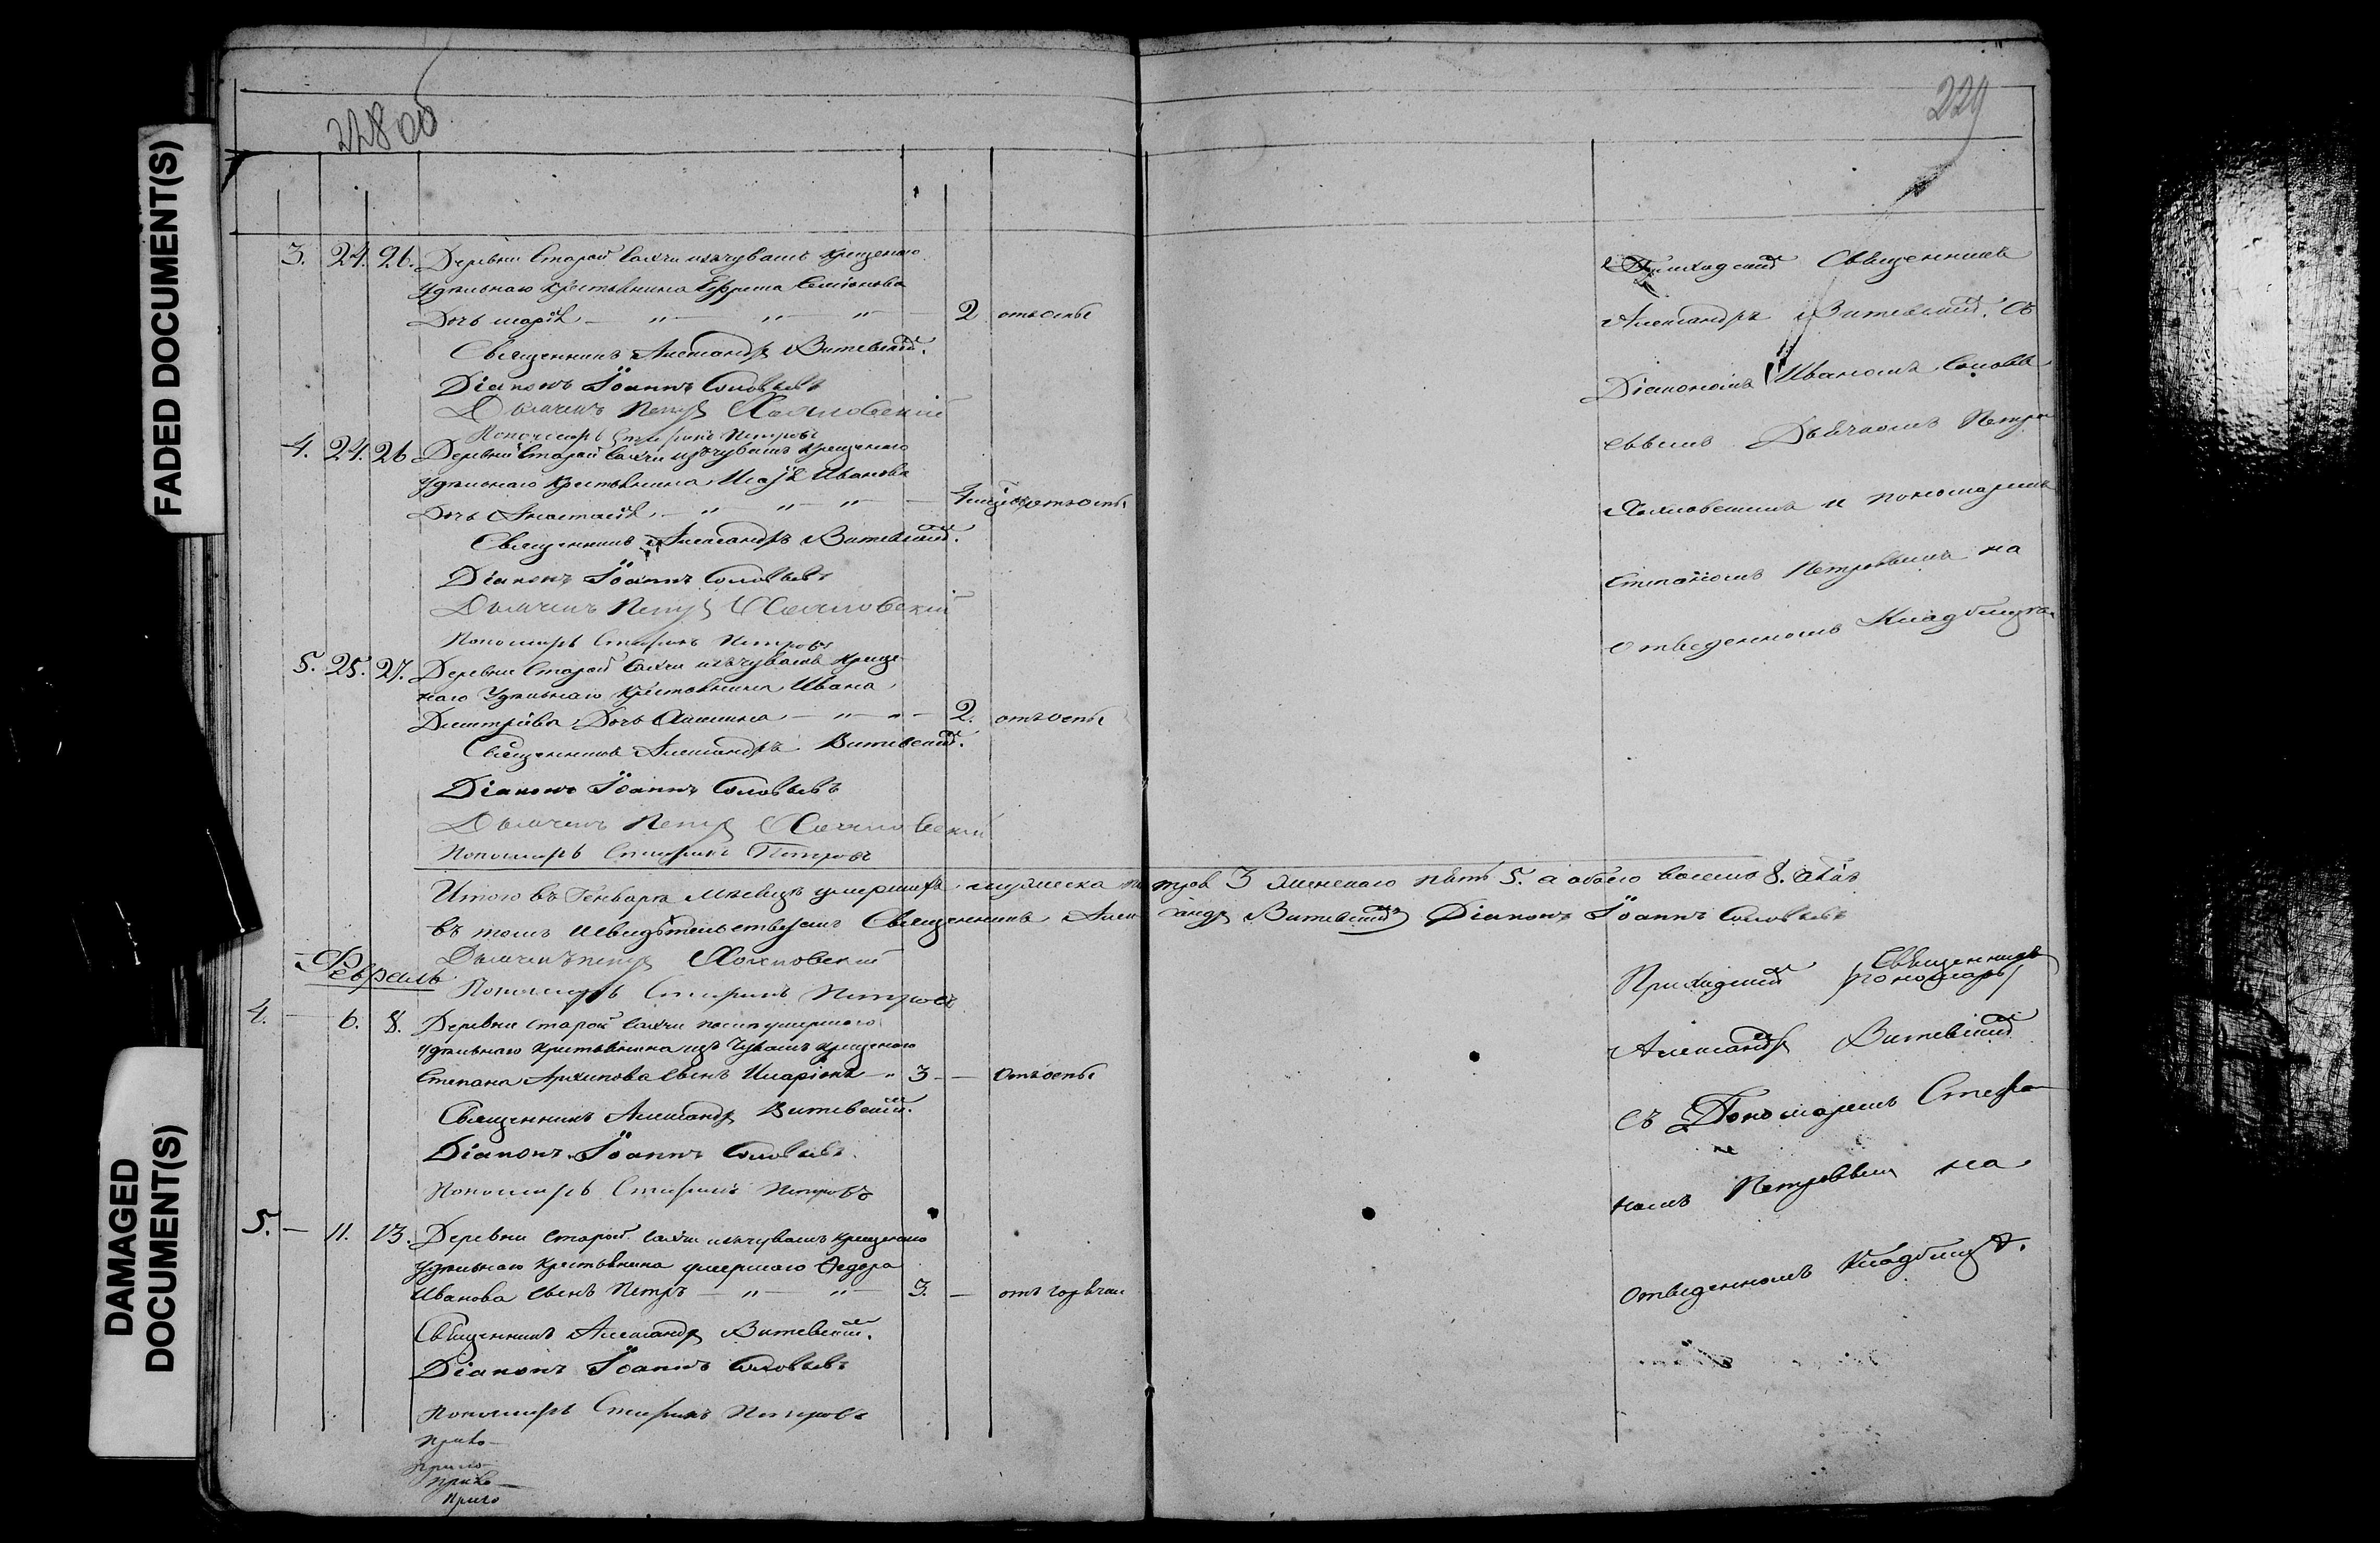 228 об
229
FADED DOCUMENT(S)
DAMAGED
DOCUMENT(S)
3. 24. 26. Деревни Старой Сахчи изъ чувашъ крещенаго
Удѣльнаго крестьянина Ефрема Семіонова
Дочь марія — " — " — " — 2 отъ оспы
Священникъ Александръ Витевскій.
Діаконъ Іоаннъ Соловьевъ
Дьячекъ Петръ
Пономарь Стефанъ Петровъ
4. 24. 26 Деревни Старой Сахчи изъ чувашъ крещенаго
Удѣльнаго крестьянина Иванова
Дочь Анастасія — " — " — " — отъ оспы
Священникъ Александръ Витевскій.
Діаконъ Іоаннъ Соловьевъ
Дьячекъ Петръ
Пономарь Стефанъ Петровъ
5. 25. 27. Деревни Старой Сахчи изъ чувашъ креще-
наго Удѣльнаго крестьянина Ивана
Дмитріева Дочь — " — " — 2. отъ оспы
Священникъ Александръ Витевскій.
Діаконъ Іоаннъ Соловьевъ
Дьячекъ Петръ
Пономарь Стефанъ Петровъ
Приходскій Священникъ
Александръ Витевскій. съ
Діакономъ Иваномъ Соловь
евымъ Дьячкомъ Петро
и пономаремъ
Стефаномъ Петровымъ на
отведенномъ Кладбищѣ.
Итого въ Генварѣ мѣсяцѣ умершихъ мужеска три 3 женскаго пять 5. а обоего восемь 8. душъ
въ томъ и свидѣтельствуемъ Священникъ Александръ Витевскій Діаконъ Іоаннъ Соловьевъ
Дьячекъ петръ
Пономарь Стефанъ Петровъ
Февраль
4. — 6. 8. Деревни Старой Сахчи после умершаго
удѣльнаго крестьянина изъ Чувашъ крещенаго
Степана Архипова сынъ Иларіонъ — " 3 — отъ оспы
Священникъ Александръ Витевскій.
Діаконъ Іоаннъ Соловьевъ.
Пономарь Стефанъ Петровъ
Приходскій Священникъ
пономарь
Александръ Витевскій
съ Пономаремъ Стефа
номъ Петровымъ на
отведенномъ Кладбищѣ.
5. — 11. 13. Деревни Старой Сахчи изъ чувашъ крещенаго
удѣльнаго крестьянина умершаго Федора
Иванова сынъ Петръ — " — " — 3. — отъ горячки
Священникъ Александръ Витевскій.
Діаконъ Іоаннъ Соловьевъ
Пономарь Стефанъ Петровъ
Прихо
Прихо
Прихо
Прихо